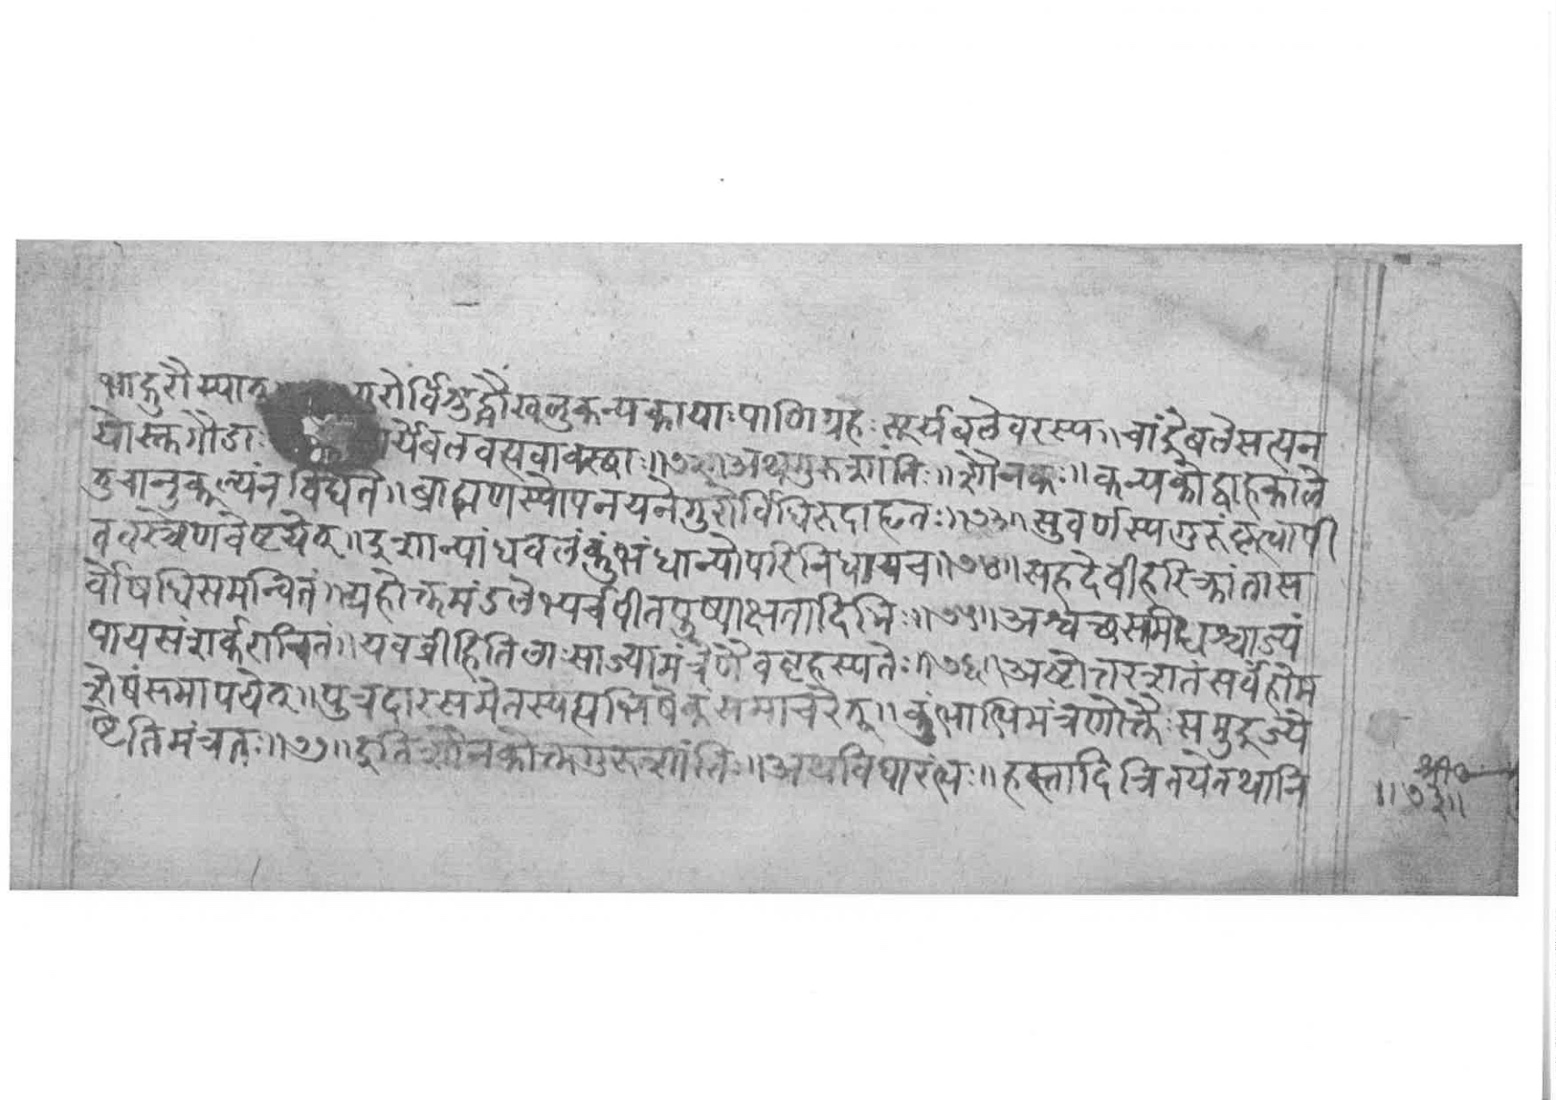 भाद्गुरौ स्यात् रोर्विशुद्धौ खलु कन्यकायाः पाणिग्रहः सूर्यबले वरस्य॥ चांद्रे बले सत्यन
योस्तगौडाः र्येवलवत्सवावस्छाः॥७२॥ अथ गुरुशांतिः॥ शौनकः॥ कन्यकोद्वाहकाले
तु चानुकूल्यं न विद्यते॥ ब्राह्मणस्योपनयने गुरोर्विधिरुदाहृतः॥७३॥ सुवर्णस्य गुरुं कृत्वा पी
तवस्त्रेण वेष्टयेत्॥ इशान्यां धवलं कुंभं धान्योपरि निधाय च॥७४॥ सहदेवी हरिक्रांता स
र्वौषधिसमन्वितं॥ ग्रहोक्तमंडलेभ्यर्च पीतपुष्पाक्षतादिभिः॥७५॥ अश्वत्थसमिधश्चाज्यं
पायसं शर्करान्वितं॥ यवव्रीहितिलाः साज्या मंत्रेणैव बृहस्पतेः॥७६॥ अष्टोत्तरशतं सर्वहोम
शेषं समापयेत्॥ पुत्रदारसमेतस्य ह्यभिषेकं समाचरेत्॥ कुंभाभिमंत्रणोक्तैः समुद्रज्ये
ष्टेति मंत्रतः॥७७॥ इति शौनकोक्तगुरुशांतिः॥ अथ विवारंभः॥ हस्तादित्रितये तथा नि
॥७३॥